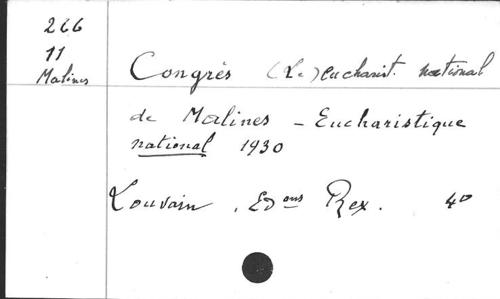 266
11
Malines
Congrès (Le) eucharist. national
de Malines - Eucharistique
national 1930
Louvain, Edons Rex. 4º